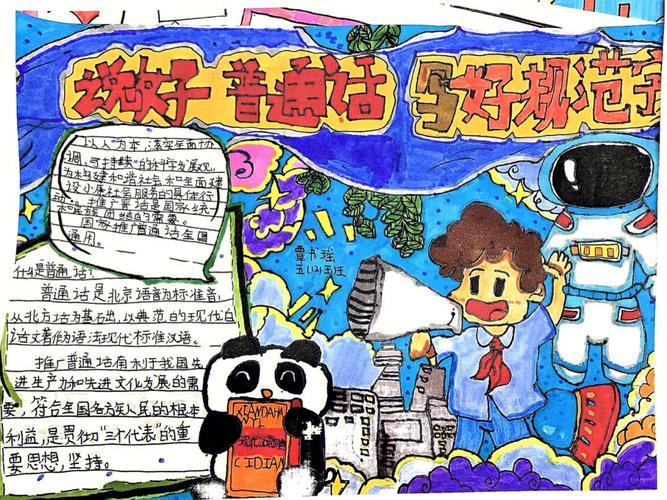 说好 普通话 写好规范字
以人为本,落实全面协
调、可持续的科学发展观,
为构建和谐社会和全面建
设小康社会服务的具体行
动。推广普通话是国家统
一和民族团结的需要。
国家推广普通话全国
通用。
覃书瑶
五(12)班
什么是普通话?
普通话是北京语音为标准音,
从北方话为基础,以典范的现代白
话文著作为语法现代标准汉语。
推广普通话有利于我国先
进生产力和先进文化发展的需
要,符合全国各方族人民的根本
利益,是贯彻“三个代表”的重
要思想,坚持。
XIANDAIHA
NYU
现代汉语词典
CIDIAN